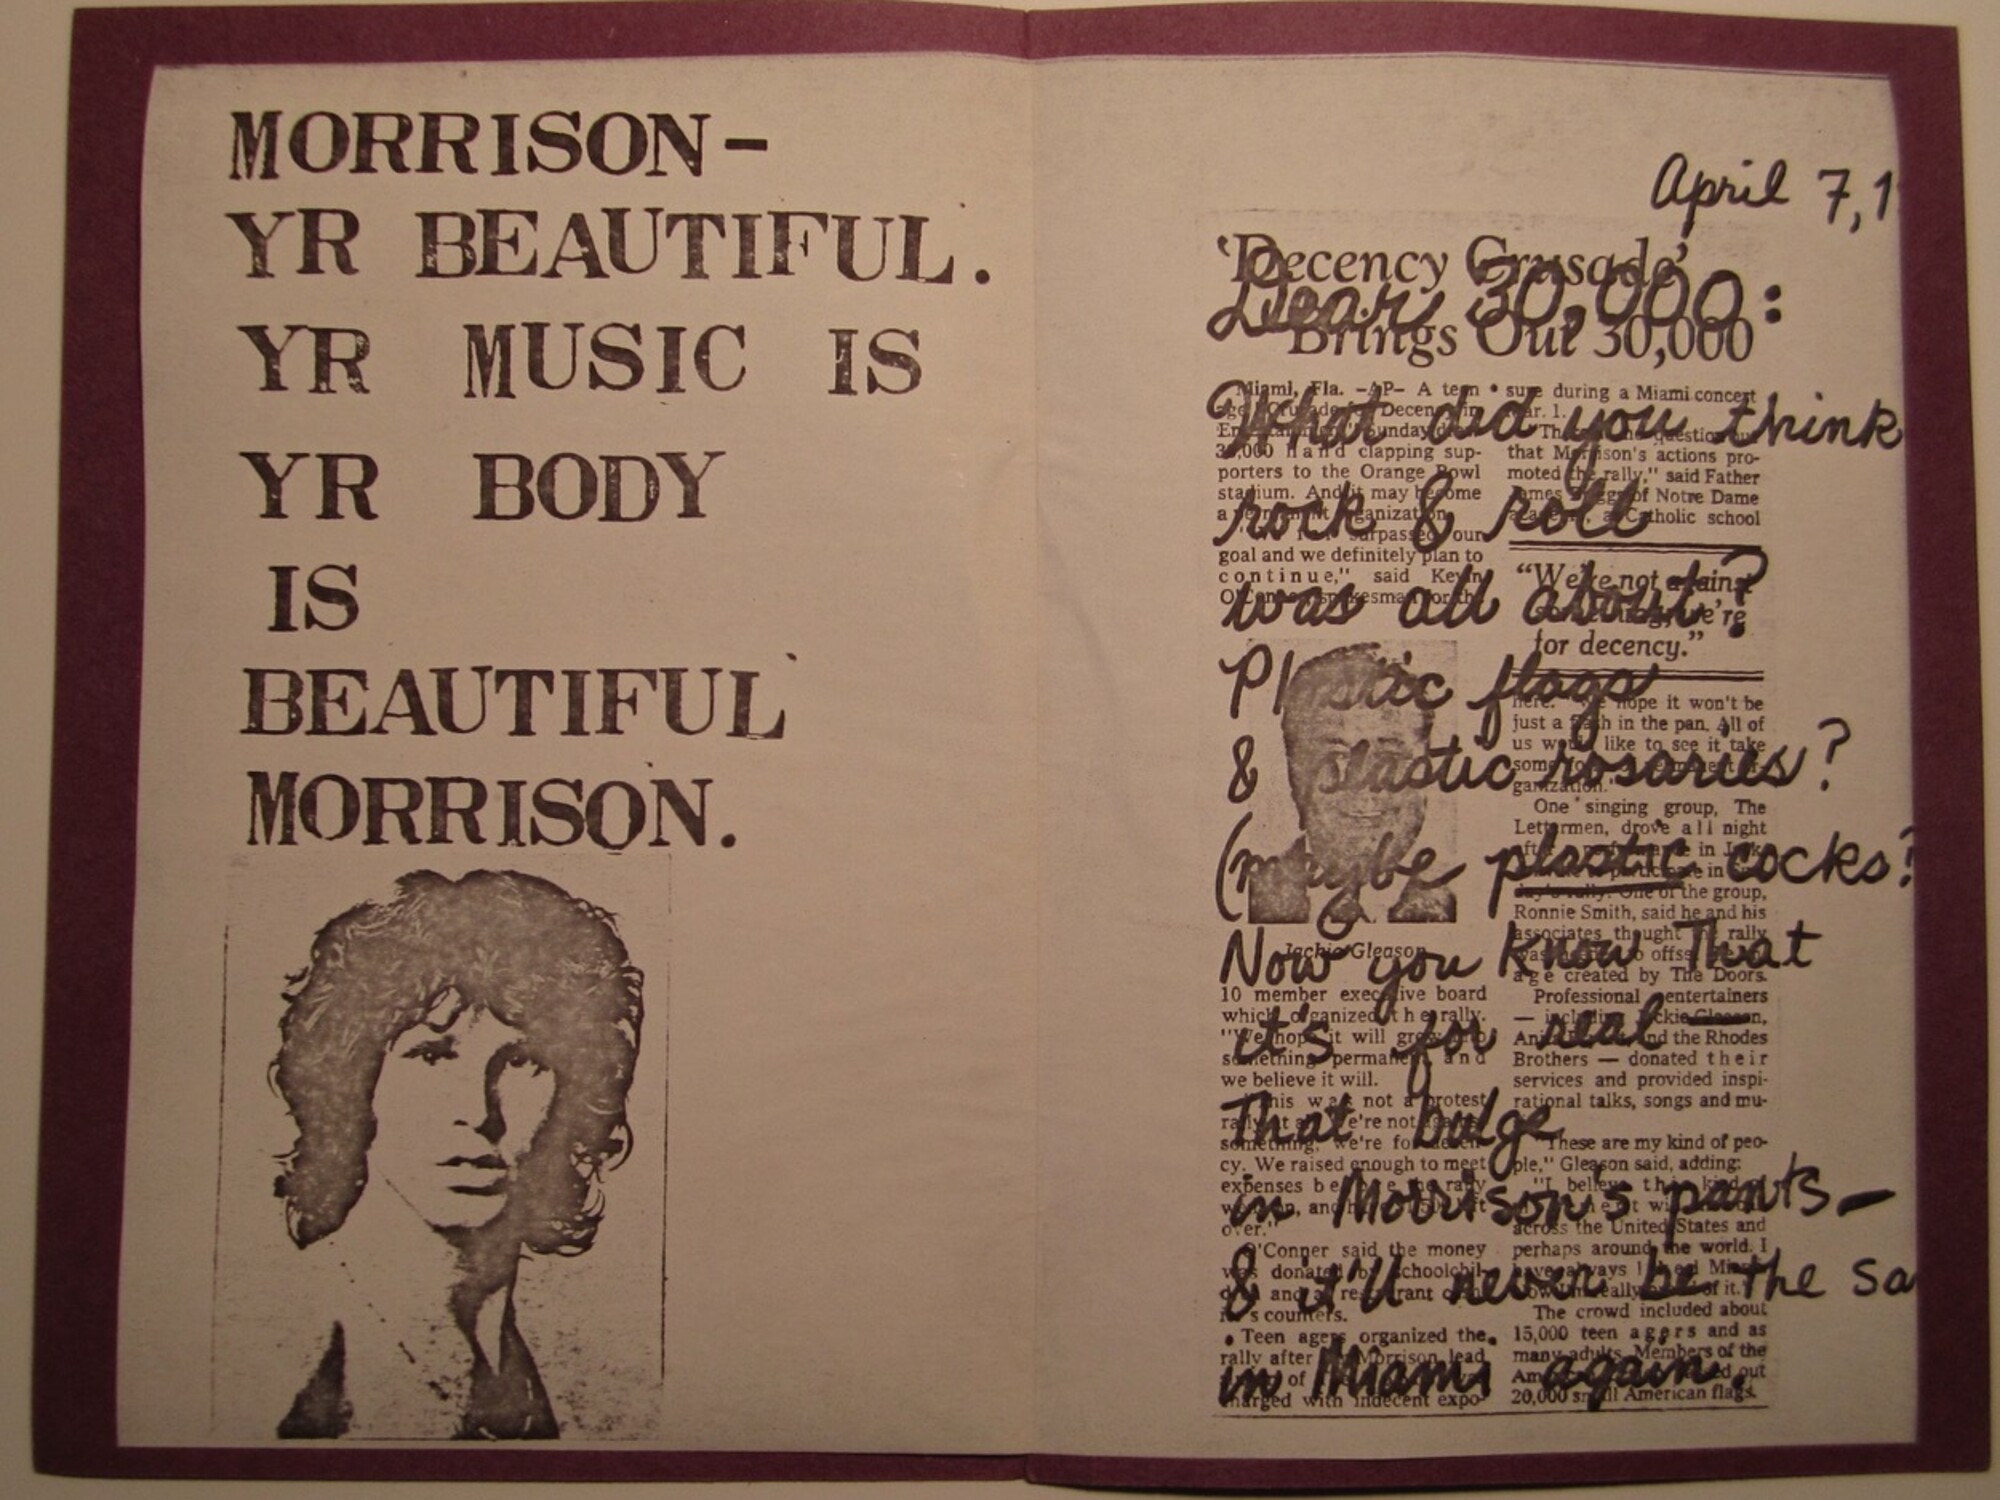 MORRISON-
YR BEAUTIFUL.
YR MUSIC IS
YR BODY
IS
BEAUTIFUL
MORRISON.
April 7, 1
Dear 30,000:
What did you think
rock & roll
was all about?
Plastic flags
& plastic rosaries?
(maybe plastic cocks?
Now you know That
it's for real —
That bulge
in Morrison's pants—
& it'll never be the sa
in Miami again.
'Decency Crusade'
Brings Out 30,000
Miami, Fla. —AP— A teen
30,000 hand clapping sup-
porters to the Orange Bowl
stadium. And it may become
surpassed our
goal and we definitely plan to
continue," said Kevin
Jackie Gleason
10 member executive board
which organized the rally.
"We hope it will
something permanent and
we believe it will.
This was not a protest
something, we're for
cy. We raised enough to meet
expenses before the rally
over."
O'Conner said the money
was donated by schoolchil-
Teen agers organized the
rally after Morrison, lead
charged with indecent expo-
sure during a Miami concert
Mar. 1.
that Morrison's actions pro-
moted the rally," said Father
of Notre Dame
academy, a Catholic school
"We're not against
something, we're
for decency."
here. "We hope it won't be
just a flash in the pan. All of
us would like to see it take
One singing group, The
Lettermen, drove all night
of the group,
Ronnie Smith, said he and his
associates thought the rally
age created by The Doors.
Professional entertainers
— including Jackie Gleason,
and the Rhodes
Brothers — donated their
services and provided inspi-
rational talks, songs and mu-
"These are my kind of peo-
ple," Gleason said, adding:
"I believe this kind of
across the United States and
perhaps around the world. I
The crowd included about
15,000 teen agers and as
many adults. Members of the
20,000 small American flags.